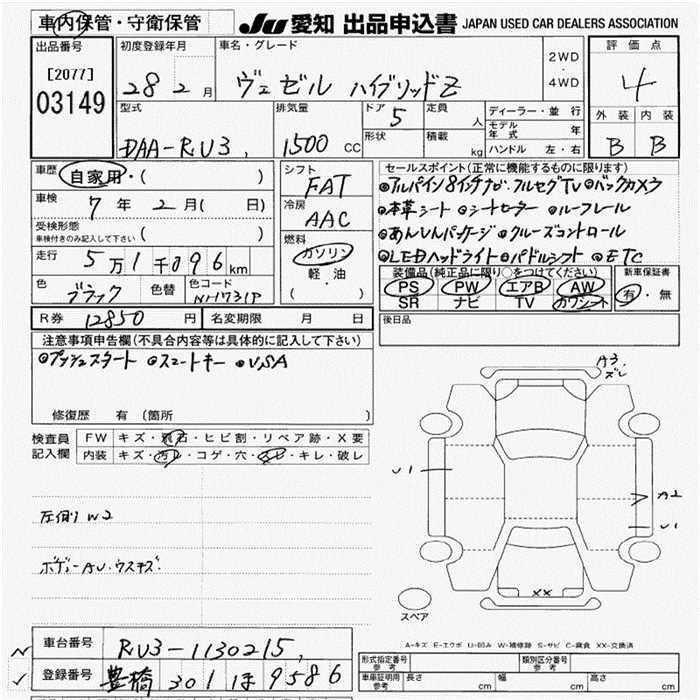 車内保管・守衛保管
JU 愛知 出品申込書 JAPAN USED CAR DEALERS ASSOCIATION
出品番号
[2077]
03149
初度登録年月
28 2 月
車名・グレード
ヴェゼル ハイブリッドZ
2WD
・
4WD
評価点
4
外装 内装
B B
型式
DAA-RU3,
排気量
1500 CC
ドア
5
形状
定員
人
積載
kg
ディーラー・並行
モデル年式 年
ハンドル 左・右
車歴
自家用・( )
車検
7 年 2 月( 日)
受検形態
車検付きのみ記入して下さい ( )
走行
5万1千096km
色
ブラック
色替
色コード
NH731P
シフト
FAT
冷房
AAC
燃料
ガソリン
軽・油
( )
セールスポイント(正常に機能するものに限ります)
◎アルパイン8インチナビ、フルセグTV ◎バックカメラ
◎本革シート ◎シートヒーター ◎ルーフレール
◎あんしんパッケージ ◎クルーズコントロール
◎LEDヘッドライト ◎パドルシフト ◎ETC
装備品(純正品に限り○をつけてください)
PS PW エアB AW
SR ナビ TV カワシート
新車保証書
有・無
R券 12850 円
名変期限 月 日
後日品
注意事項申告欄(不具合内容等は具体的に記入して下さい)
◎プッシュスタート ◎スマートキー ◎VSA
修復歴 有(箇所 )
検査員
記入欄
FW キズ・飛石・ヒビ割・リペア跡・X要
内装 キズ・汚レ・コゲ・穴・スレ・キレ・破レ
左側リ W2
ボディーAU、ウスキズ.
A3、
ズレ
U1
A2
U1
XX
スペア
A-キズ E-エクボ U-凹み W-補修跡 S-サビ C-腐食 XX-交換済
車台番号
RU3-1130215,
登録番号
豊橋 301 ほ 9586
形式指定番号
参考
類別区分番号
参考
車庫証明用
参考
長さ cm 幅 cm 高さ cm